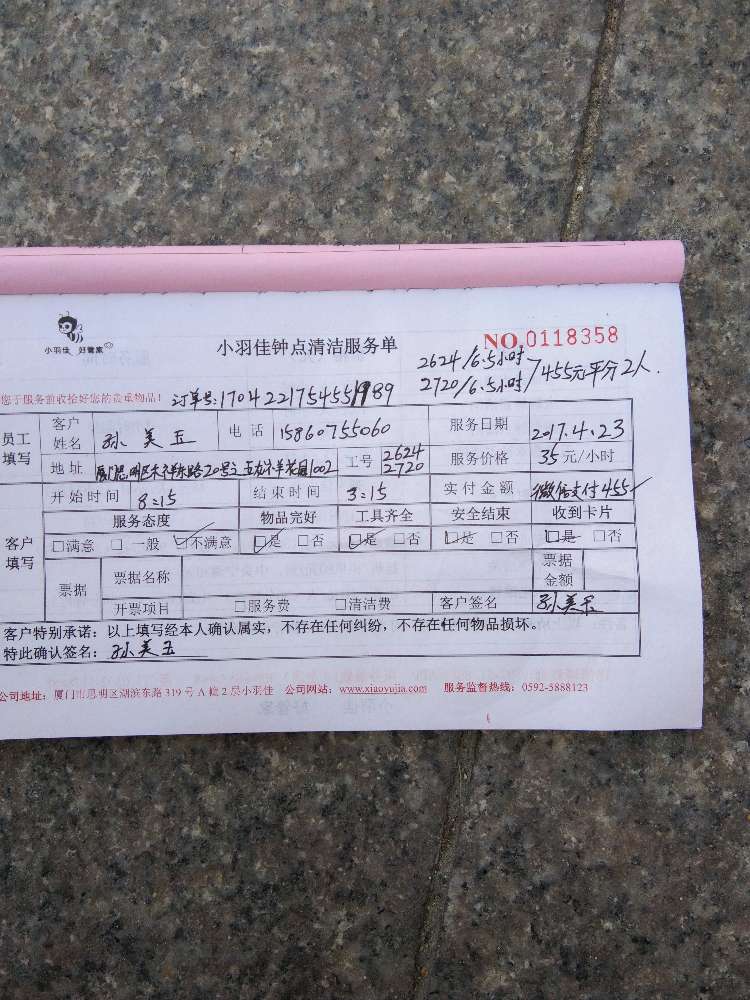 小羽佳 好管家
小羽佳钟点清洁服务单
NO.0118358
2624/6.5小时
2720/6.5小时 / 455元平分2人.
您于服务前收拾好您的贵重物品!
订单号:17042217545551989
员工填写 客户姓名 孙美玉 电话 15860755060 服务日期 2017.4.23
地址 20号之 1002 工号 2624 2720 服务价格 35元/小时
开始时间 8:15 结束时间 3:15 实付金额 微信支付455
客户填写 服务态度 物品完好 工具齐全 安全结束 收到卡片
□满意 □一般 □不满意 □是 □否 □是 □否 □是 □否 □是 □否
票据 票据名称 票据金额
开票项目 □服务费 □清洁费 客户签名 孙美玉
客户特别承诺：以上填写经本人确认属实，不存在任何纠纷，不存在任何物品损坏。
特此确认签名：孙美玉
公司地址：厦门市思明区湖滨东路319号A幢2层小羽佳 公司网站：www.xiaoyujia.com 服务监督热线：0592-5888123